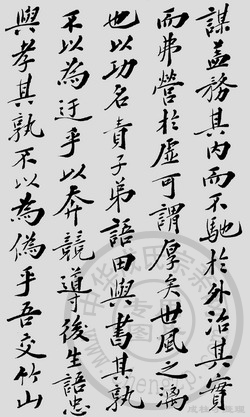 謀盖務其内而不馳於外治其實
而弗營於虛可謂厚矣世風之漓
也以功名責子弟語由與書其孰
不以為迂乎以奔競導後生語忠
與孝其孰不以為偽乎吾交竹山